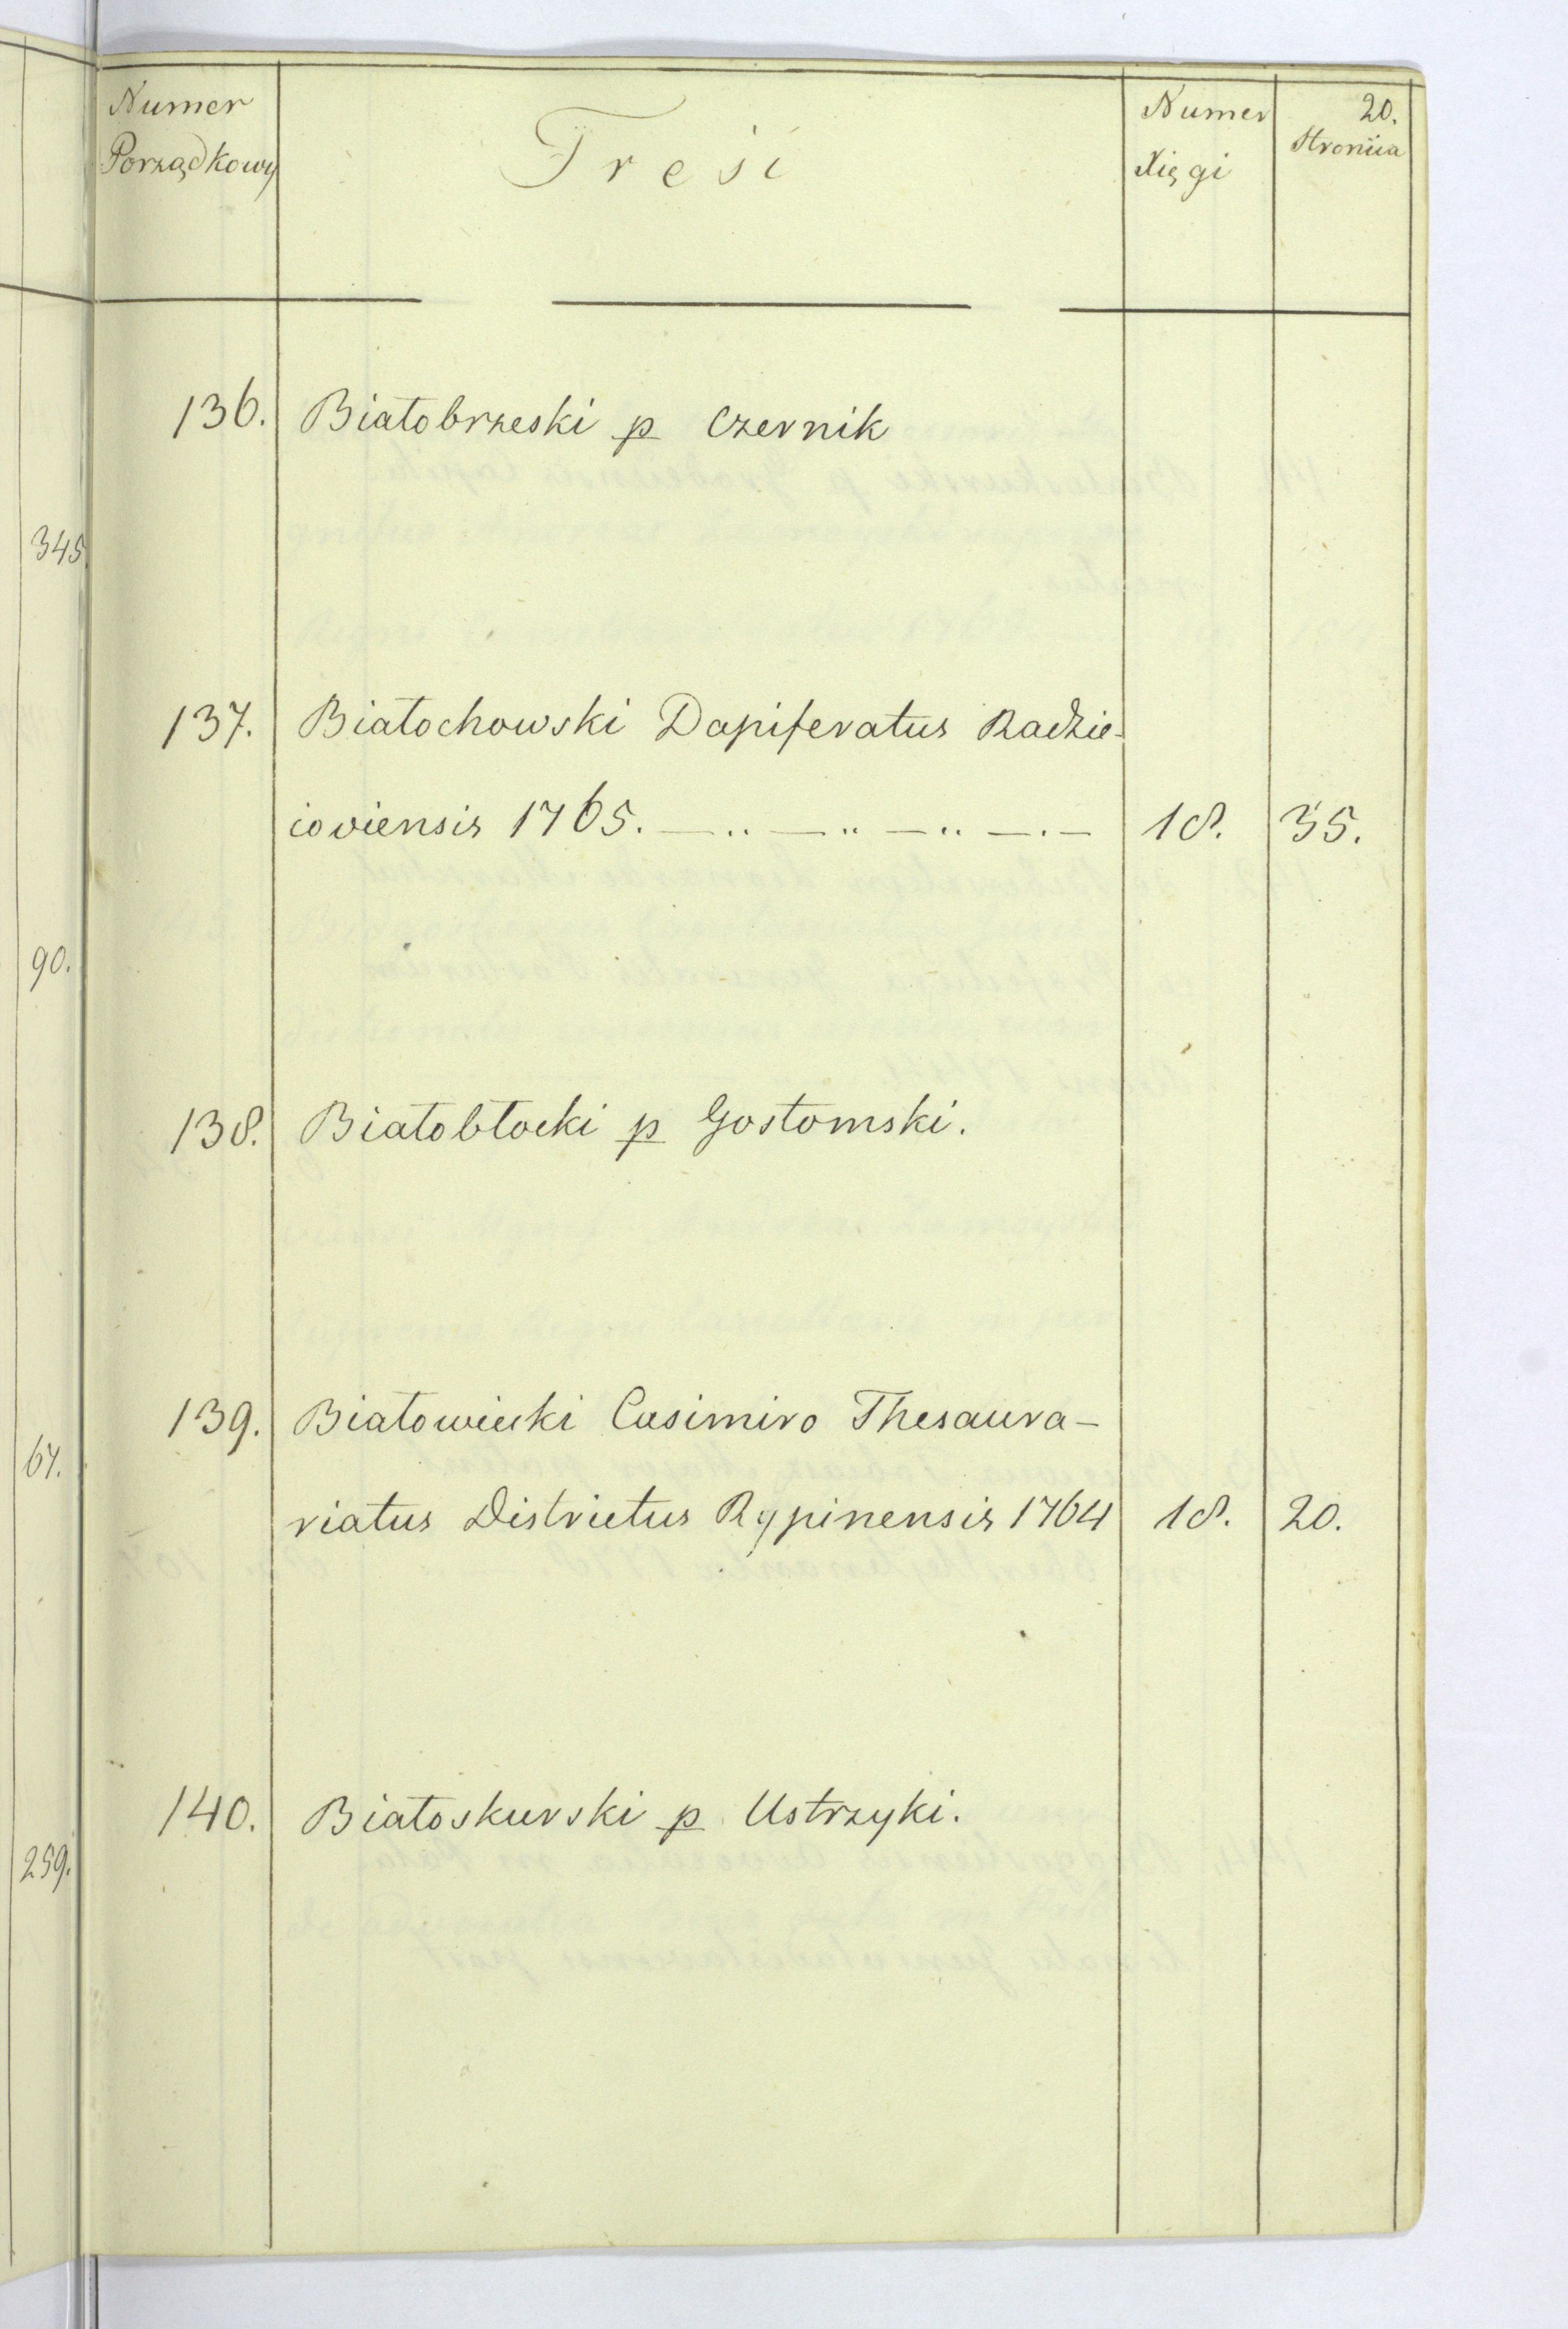 345.
90.
67.
259.
20.
Numer Porządkowy
Treść
Numer Xięgi
Stronica
136. Białobrzeski p Czernik
137. Białochowski Dapiferatus Radzie-
ioviensis 1765. — .. — .. — .. — . — 18. 35.
138. Białobłocki p Gostomski.
139. Białowiecki Casimiro Thesaura-
riatus Districtus Rypinensis 1764 18. 20.
140. Białoskurski p Ustrzyki.